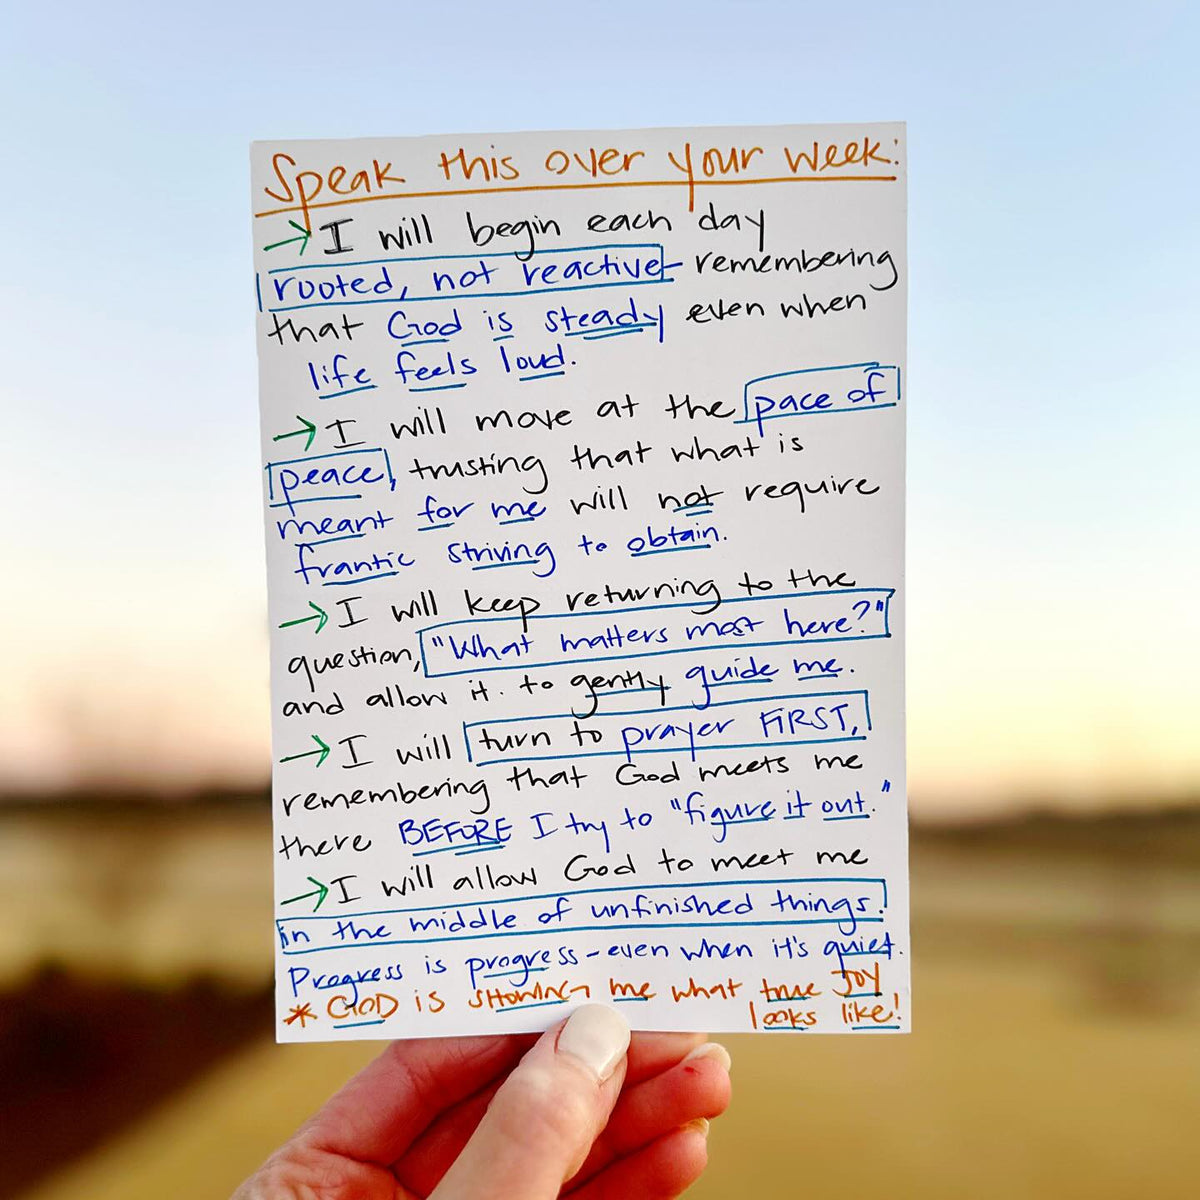 Speak this over your week:
→ I will begin each day
rooted, not reactive - remembering
that God is steady even when
life feels loud.
→ I will move at the pace of
peace, trusting that what is
meant for me will not require
frantic striving to obtain.
→ I will keep returning to the
question, "What matters most here?"
and allow it to gently guide me.
→ I will turn to prayer FIRST,
remembering that God meets me
there BEFORE I try to "figure it out."
→ I will allow God to meet me
in the middle of unfinished things.
Progress is progress - even when it's quiet.
* GOD is SHOWING me what true JOY
looks like!